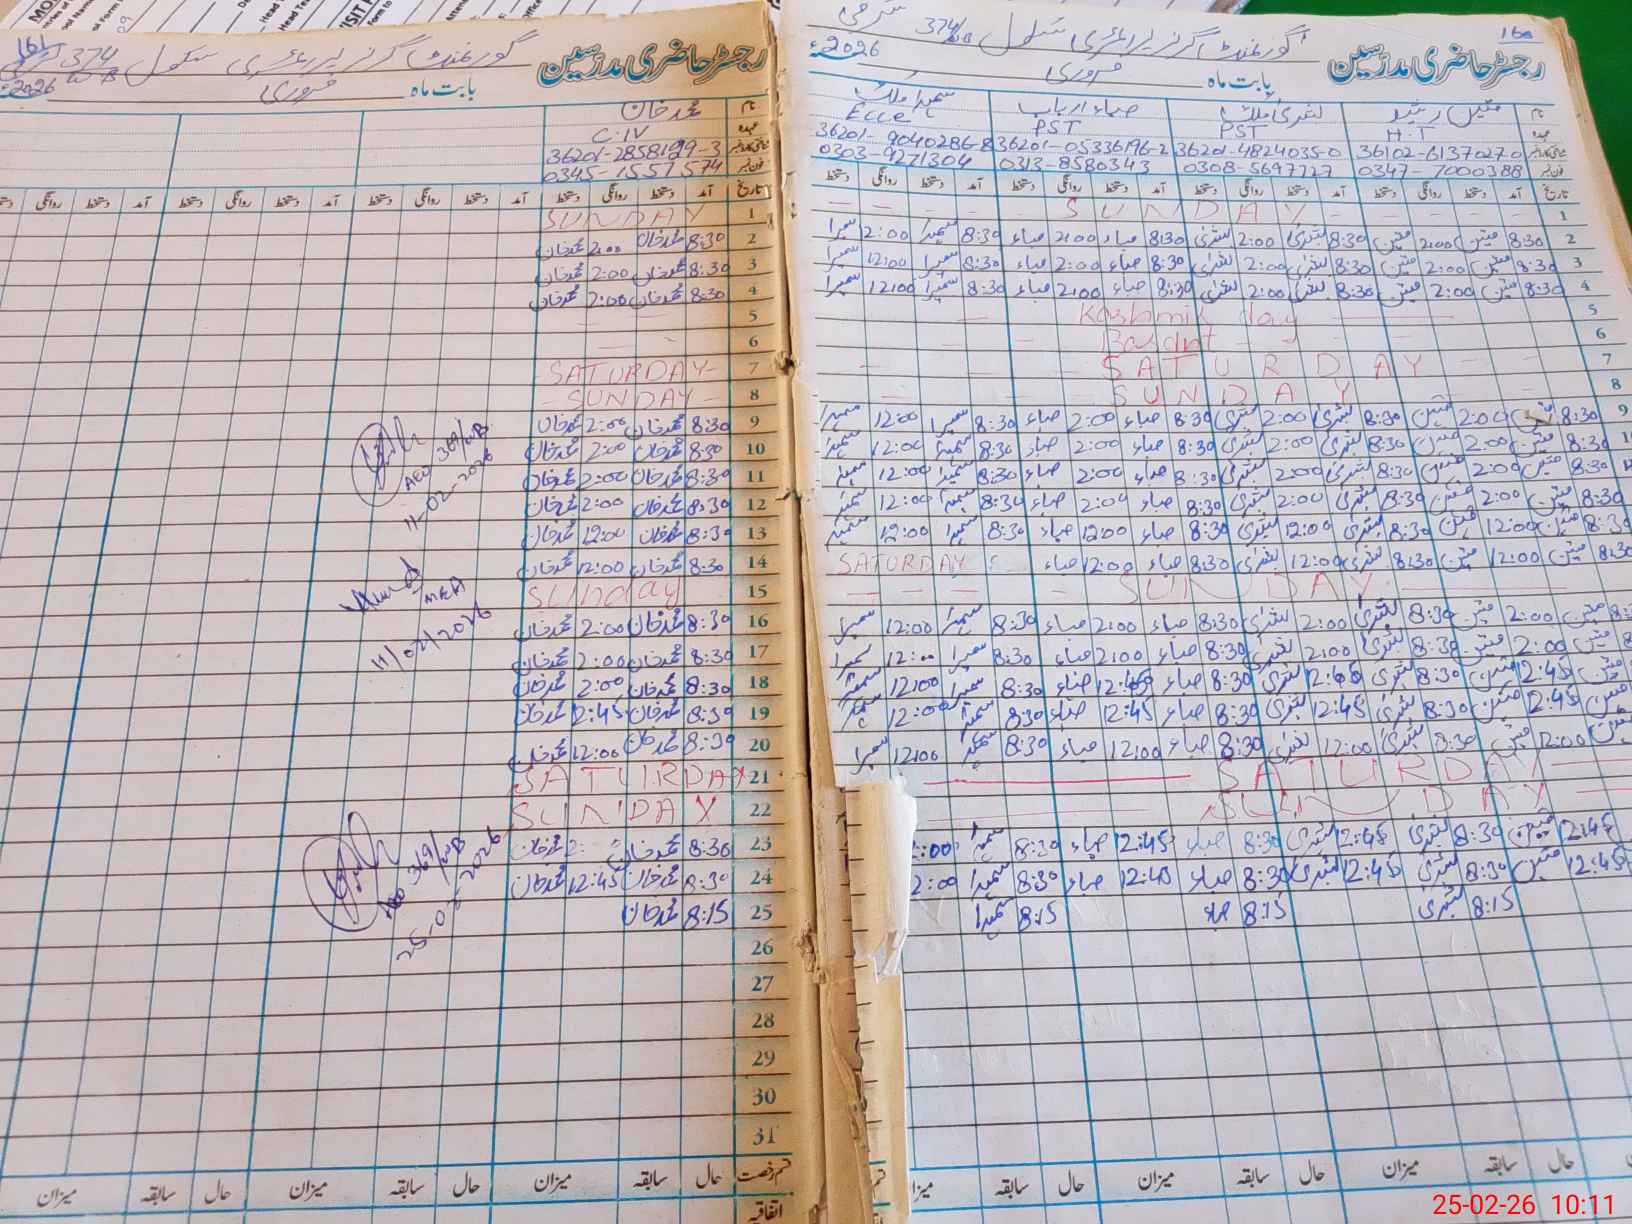 161
رجسٹر حاضری مدرسین گورنمنٹ گرلز پرائمری سکول 374/WB
بابت ماہ فروری 2026ء
نام محمد خان
عہدہ C.IV
36201-2858199-3
0345-1557574
تاریخ آمد دستخط روانگی دستخط آمد دستخط روانگی دستخط آمد دستخط روانگی دستخط
1 SUNDAY
2 8:30 محمد خان 2:00 محمد خان
3 8:30 محمد خان 2:00 محمد خان
4 8:30 محمد خان 2:00 محمد خان
5
6
7 SATURDAY
8 SUNDAY
9 8:30 محمد خان 2:00 محمد خان
10 8:30 محمد خان 2:00 محمد خان
11 8:30 محمد خان 2:00 محمد خان
12 8:30 محمد خان 2:00 محمد خان
13 8:30 محمد خان 12:00 محمد خان
14 8:30 محمد خان 12:00 محمد خان
15 Sunday
16 8:30 محمد خان 2:00 محمد خان
17 8:30 محمد خان 2:00 محمد خان
18 8:30 محمد خان 2:00 محمد خان
19 8:30 محمد خان 2:45 محمد خان
20 8:30 محمد خان 12:00 محمد خان
21 SATURDAY
22 SUNDAY
23 8:30 محمد خان 2: محمد خان
24 8:30 محمد خان 12:45 محمد خان
25 8:15 محمد خان
26
27
28
29
30
31
قسم رخصت حال سابقہ میزان حال سابقہ میزان حال سابقہ میزان
اتفاقیہ
AEO 369/WB
11-02-2026
MEA
11/02/2026
AEO 369/WB
25-02-2026
160
رجسٹر حاضری مدرسین گورنمنٹ گرلز پرائمری سکول 374/WB
بابت ماہ فروری 2026ء
نام متین رشید بشریٰ ملک صباء ارباب سمیرا ملک
عہدہ H.T PST PST Ecce
36102-6137027-0 36201-4824035-0 36201-05336196-2 36201-9040286-8
0347-7000388 0308-5697727 0313-8580343 0303-9271304
تاریخ آمد دستخط روانگی دستخط آمد دستخط روانگی دستخط آمد دستخط روانگی دستخط آمد دستخط روانگی دستخط
1 SUNDAY
2 8:30 متین 2:00 متین 8:30 بشریٰ 2:00 بشریٰ 8:30 صباء 2:00 صباء 8:30 سمیرا 12:00 سمیرا
3 8:30 متین 2:00 متین 8:30 بشریٰ 2:00 بشریٰ 8:30 صباء 2:00 صباء 8:30 سمیرا 12:00 سمیرا
4 8:30 متین 2:00 متین 8:30 بشریٰ 2:00 بشریٰ 8:30 صباء 2:00 صباء 8:30 سمیرا 12:00 سمیرا
5 Kashmir day
6 Basant
7 SATURDAY
8 SUNDAY
9 8:30 متین 2:00 متین 8:30 بشریٰ 2:00 بشریٰ 8:30 صباء 2:00 صباء 8:30 سمیرا 12:00 سمیرا
8:30 متین 2:00 متین 8:30 بشریٰ 2:00 بشریٰ 8:30 صباء 2:00 صباء 8:30 سمیرا 12:00 سمیرا
8:30 متین 2:00 متین 8:30 بشریٰ 2:00 بشریٰ 8:30 صباء 2:00 صباء 8:30 سمیرا 12:00 سمیرا
8:30 متین 2:00 متین 8:30 بشریٰ 2:00 بشریٰ 8:30 صباء 2:00 صباء 8:30 سمیرا 12:00 سمیرا
8:30 متین 12:00 متین 8:30 بشریٰ 12:00 بشریٰ 8:30 صباء 12:00 صباء 8:30 سمیرا 12:00 سمیرا
8:30 متین 12:00 متین 8:30 بشریٰ 12:00 بشریٰ 8:30 صباء 12:00 صباء SATURDAY
SUNDAY
متین 2:00 متین 8:30 بشریٰ 2:00 بشریٰ 8:30 صباء 2:00 صباء 8:30 سمیرا 12:00 سمیرا
متین 2:00 متین 8:30 بشریٰ 2:00 بشریٰ 8:30 صباء 2:00 صباء 8:30 سمیرا 12:00 سمیرا
متین 12:45 متین 8:30 بشریٰ 12:45 بشریٰ 8:30 صباء 12:45 صباء 8:30 سمیرا 12:00 سمیرا
متین 12:45 متین 8:30 بشریٰ 12:45 بشریٰ 8:30 صباء 12:45 صباء 8:30 سمیرا 12:00 سمیرا
متین 12:00 متین 8:30 بشریٰ 12:00 بشریٰ 8:30 صباء 12:00 صباء 8:30 سمیرا 12:00 سمیرا
SATURDAY
SUNDAY
12:45 متین 8:30 بشریٰ 12:45 بشریٰ 8:30 صباء 12:45 صباء 8:30 سمیرا 2:00
12:45 متین 8:30 بشریٰ 12:45 بشریٰ 8:30 صباء 12:45 صباء 8:30 سمیرا 2:00
8:15 بشریٰ 8:15 صباء 8:15 سمیرا
حال سابقہ میزان حال سابقہ میزان حال سابقہ میزان
25-02-26 10:11